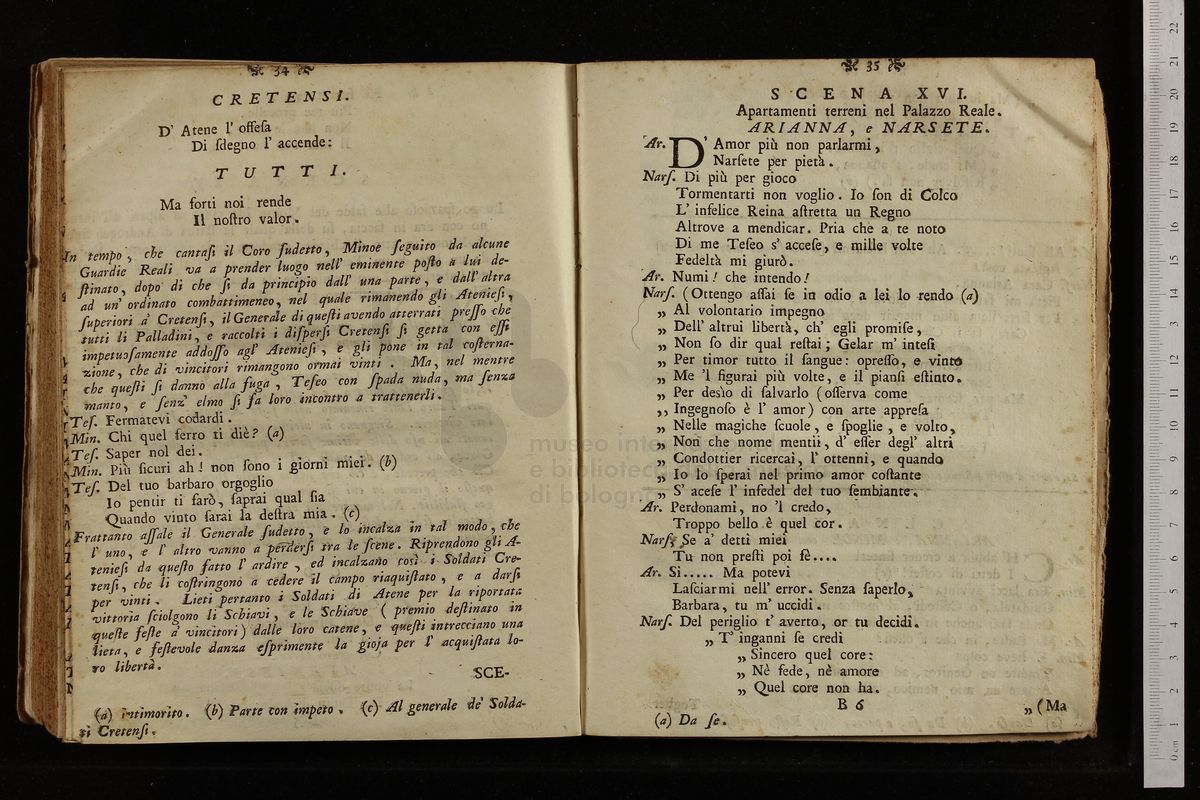 34
CRETENSI.
D' Atene l' offeſa
Di ſdegno l' accende:
TUTTI.
Ma forti noi rende
Il noſtro valor.
In tempo, che cantaſi il Coro ſudetto, Minoe ſeguito da alcune
Guardie Reali va a prender luogo nell' eminente poſto a lui de-
ſtinato, dopo di che ſi da principio dall' una parte, e dall' altra
ad un' ordinato combattimeneo, nel quale rimanendo gli Atenieſi,
ſuperiori a' Cretenſi, il Generale di queſti avendo atterrati preſſo che
tutti li Palladini, e raccolti i diſperſi Cretenſi ſi getta con eſſi
impetuoſamente addoſſo agl' Atenieſi, e gli pone in tal coſterna-
zione, che di vincitori rimangono ormai vinti. Ma, nel mentre
che queſti ſi danno alla fuga, Teſeo con ſpada nuda, ma ſenza
manto, e ſenz' elmo ſi fa loro incontro a trattenerli.
Teſ. Fermatevi codardi.
Min. Chi quel ferro ti diè? (a)
Teſ. Saper nol dei.
Min. Più ſicuri ah! non ſono i giorni miei. (b)
Teſ. Del tuo barbaro orgoglio
Io pentir ti farò, ſaprai qual ſia
Quando vinto ſarai la deſtra mia. (c)
Frattanto aſſale il Generale ſudetto, e lo incalza in tal modo, che
l' uno, e l' altro vanno a perderſi tra le ſcene. Riprendono gli A-
tenieſi da queſto fatto l' ardire, ed incalzano così i Soldati Cre-
tenſi, che li coſtringono a cedere il campo riaquiſtato, e a darſi
per vinti. Lieti pertanto i Soldati di Atene per la riportata
vittoria ſciolgono li Schiavi, e le Schiave (premio deſtinato in
queſte feſte a' vincitori) dalle loro catene, e queſti intrecciano una
lieta, e feſtevole danza eſprimente la gioja per l' acquiſtata lo-
ro libertà.
SCE-
(a) intimorito. (b) Parte con impeto. (c) Al generale de' Solda-
ti Cretenſi.
35
SCENA XVI.
Apartamenti terreni nel Palazzo Reale.
ARIANNA, e NARSETE.
Ar. D' Amor più non parlarmi,
Narſete per pietà.
Narſ. Di più per gioco
Tormentarti non voglio. Io ſon di Colco
L' infelice Reina aſtretta un Regno
Altrove a mendicar. Pria che a te noto
Di me Teſeo s' acceſe, e mille volte
Fedeltà mi giurò.
Ar. Numi! che intendo!
Narſ. (Ottengo aſſai ſe in odio a lei lo rendo (a)
„ Al volontario impegno
„ Dell' altrui libertà, ch' egli promiſe,
„ Non ſo dir qual reſtai; Gelar m' inteſi
„ Per timor tutto il ſangue: opreſſo, e vinto
„ Me 'l figurai più volte, e il pianſi eſtinto.
„ Per desìo di ſalvarlo (oſſerva come
„ Ingegnoſo è l' amor) con arte appreſa
„ Nelle magiche ſcuole, e ſpoglie, e volto,
„ Non che nome mentii, d' eſſer degl' altri
„ Condottier ricercai, l' ottenni, e quando
„ Io lo ſperai nel primo amor coſtante
„ S' aceſe l' infedel del tuo ſembiante.
Ar. Perdonami, no 'l credo,
Troppo bello è quel cor.
Narſ. Se a' detti miei
Tu non preſti poi fè....
Ar. Si..... Ma potevi
Laſciarmi nell' error. Senza ſaperlo,
Barbara, tu m' uccidi.
Narſ. Del periglio t' averto, or tu decidi.
„ T' inganni ſe credi
„ Sincero quel core:
„ Nè fede, nè amore
„ Quel core non ha.
B 6
„ (Ma
(a) Da ſe.
museo inte
e bibliotec
di bologna